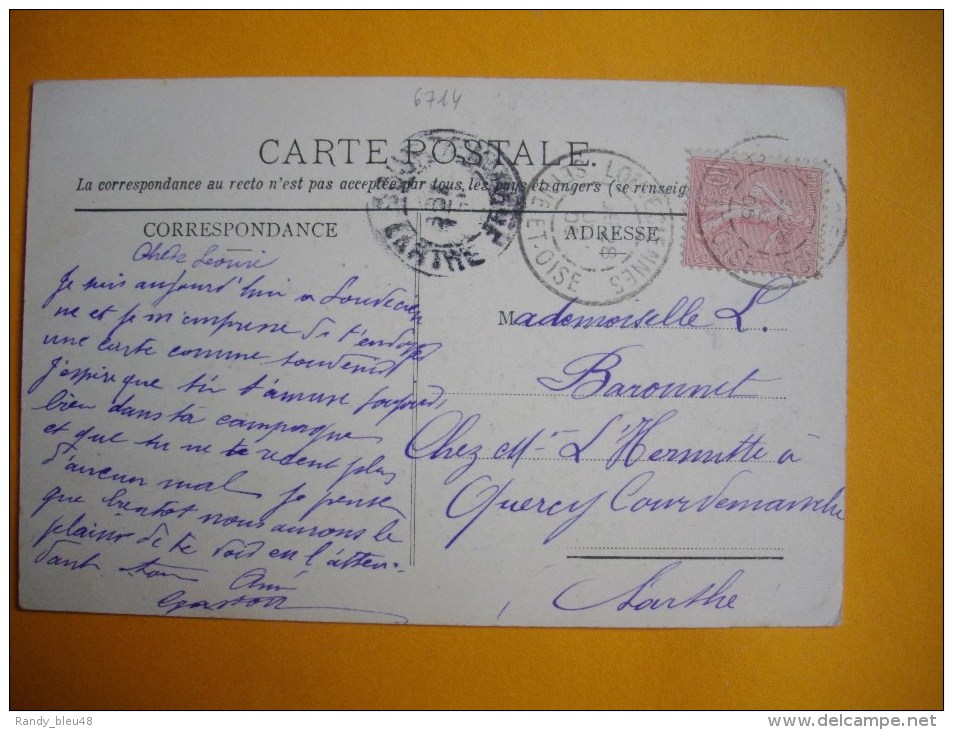 6714
CARTE POSTALE.
La correspondance au recto n'est pas acceptée par tous les pays étrangers (se renseig
CORRESPONDANCE
ADRESSE
LOUVECIENNES
SEINE-ET-OISE
SARTHE
Chère Léonie
Je suis aujourd'hui a Louvecien
ne et je m'empresse de t'envoyer
une carte comme souvenir
J'espère que tu t'amuse toujours
bien dans ta campagne
et que tu ne te recent plus
d'aucun mal je pense
que bientot nous aurons le
plaisir de te voir en l'atten-
dant ton Ami
Gaston
Mademoiselle L.
Barounet
Chez Mr L'Hermitte à
Quercy Courdemanche
Sarthe
Randy_bleu48
http://www.delcampe.net